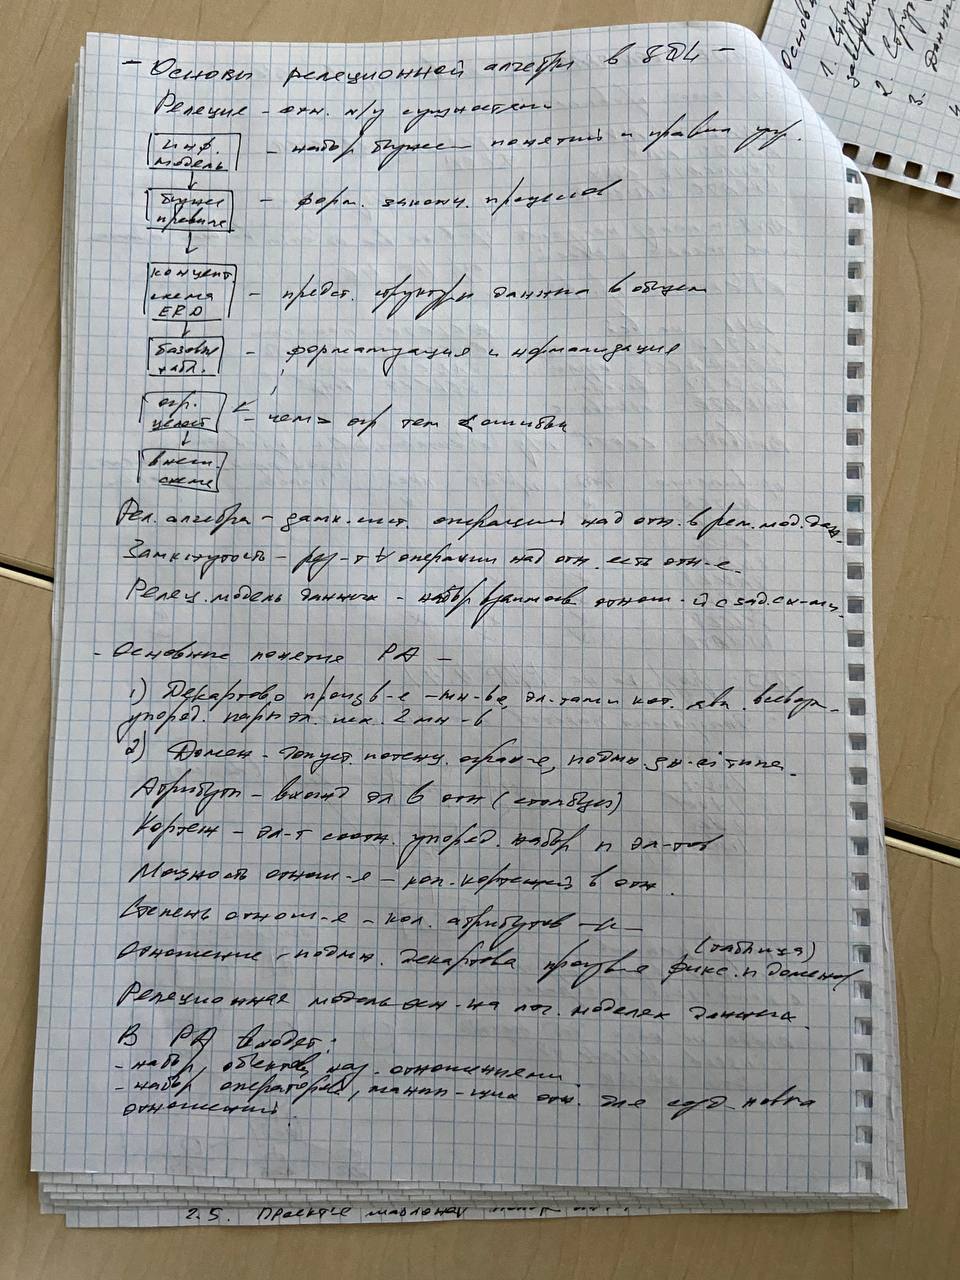 - Основы реляционной алгебры в SQL -
Реляция - отн. м/у сущностями
инф. модель - набор бизнес понятий и правил
бизнес правила - форм. законы. процессов
концепт. схема ERD - предст. структуры данных в общем
базовые табл. - форматизация и нормализация
огр. целост - чем > огр тем < ошибки
внеш. схема
Рел. алгебра - замк. сист. операций над отн. в рел. мод. дан.
Замкнутость - рез-т ∀ операции над отн. есть отн-е.
Реляц. модель данных - набор взаимосв. отнош-й с зад. сх-мы.
- Основные понятия РА -
1) Декартово произв-е - мн-во, эл-тами кот. явл. всевозм.
упоряд. пары эл. исх. 2 мн-в
2) Домен - допуст. потенц. огран-е, подмн. зн-ей типа.
Атрибуты - вход эл в отн (столбцы)
Кортеж - эл-т соотн. упоряд. набор n эл-тов
Мощность отнош-я - кол. кортежей в отн.
Степень отнош-я - кол. атрибутов -//-
(таблица)
отношение - подмн. декартова произв-я фикс. n доменов
Реляционная модель осн-на лог. моделях данных.
В РА входят:
- набор объектов, наз. отношениями.
- набор операторов, манип-щих отн. для созд новых
отношений.
2.5.
1.
2.
3.